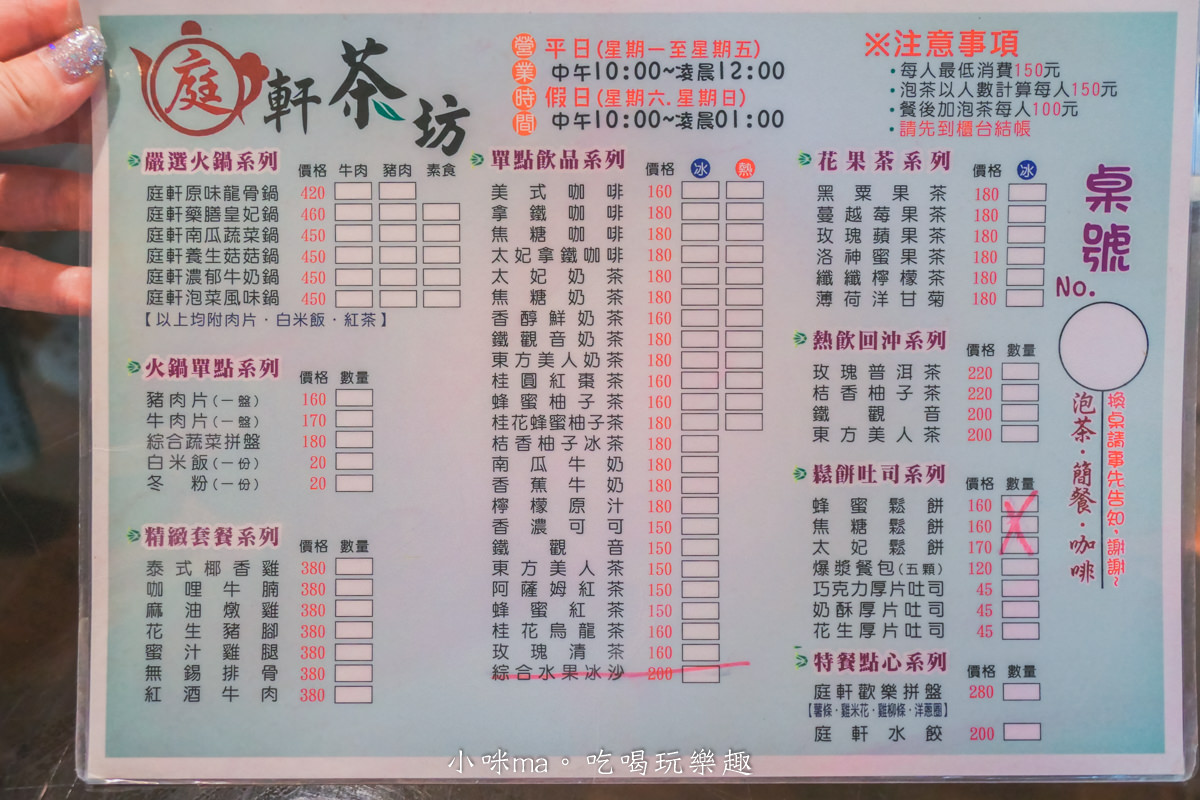 庭軒茶坊
營業時間
平日(星期一至星期五)
中午10:00~凌晨12:00
假日(星期六.星期日)
中午10:00~凌晨01:00
※注意事項
•每人最低消費150元
•泡茶以人數計算每人150元
•餐後加泡茶每人100元
•請先到櫃台結帳
嚴選火鍋系列 價格 牛肉 豬肉 素食
庭軒原味龍骨鍋 420
庭軒藥膳皇妃鍋 460
庭軒南瓜蔬菜鍋 450
庭軒養生菇菇鍋 450
庭軒濃郁牛奶鍋 450
庭軒泡菜風味鍋 450
【以上均附肉片·白米飯·紅茶】
火鍋單點系列 價格 數量
豬肉片(一盤) 160
牛肉片(一盤) 170
綜合蔬菜拼盤 180
白米飯(一份) 20
冬粉(一份) 20
精緻套餐系列 價格 數量
泰式椰香雞 380
咖哩牛腩 380
麻油燉雞 380
花生豬腳 380
蜜汁雞腿 380
無錫排骨 380
紅酒牛肉 380
單點飲品系列 價格 冰 熱
美式咖啡 160
拿鐵咖啡 180
焦糖咖啡 180
太妃拿鐵咖啡 180
太妃奶茶 180
焦糖奶茶 180
香醇鮮奶茶 160
鐵觀音奶茶 180
東方美人奶茶 180
桂圓紅棗茶 160
蜂蜜柚子茶 160
桂花蜂蜜柚子茶 180
桔香柚子冰茶 180
南瓜牛奶 180
香蕉牛奶 180
檸檬原汁 180
香濃可可 150
鐵觀音 150
東方美人茶 150
阿薩姆紅茶 150
蜂蜜紅茶 150
桂花烏龍茶 160
玫瑰清茶 160
綜合水果冰沙 200
花果茶系列 價格 冰
黑粟果茶 180
蔓越莓果茶 180
玫瑰蘋果茶 180
洛神蜜果茶 180
纖纖檸檬茶 180
薄荷洋甘菊 180
熱飲回沖系列 價格 數量
玫瑰普洱茶 220
桔香柚子茶 220
鐵觀音 200
東方美人茶 200
鬆餅吐司系列 價格 數量
蜂蜜鬆餅 160
焦糖鬆餅 160
太妃鬆餅 170
爆漿餐包(五顆) 120
巧克力厚片吐司 45
奶酥厚片吐司 45
花生厚片吐司 45
特餐點心系列 價格 數量
庭軒歡樂拼盤 280
【薯條·雞米花·雞柳條·洋蔥圈】
庭軒水餃 200
桌號
No.
換桌請事先告知、謝謝~
泡茶·簡餐·咖啡
小咪ma。吃喝玩樂趣